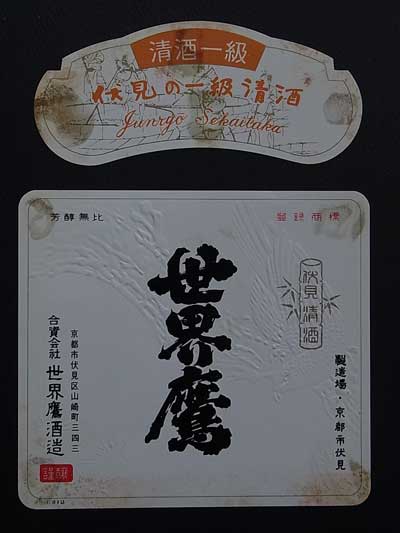 清酒一級
伏見の一級清酒
Junryo Sekaitaka
芳醇無比
登録商標
世界鷹
伏見清酒
製造場・京都市伏見
京都市伏見区山崎町三四三
合資会社 世界鷹酒造
謹醸